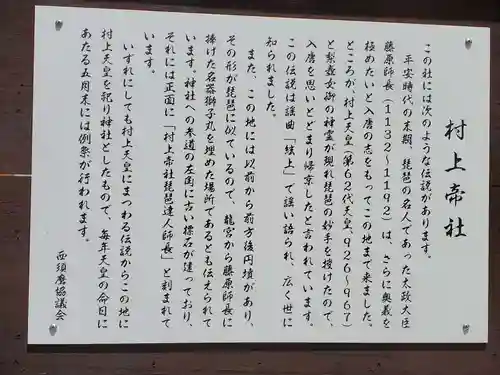 村上帝社
この社には次のような伝説があります。
平安時代の末期、琵琶の名人であった太政大臣
藤原師長(1132~1192)は、さらに奥義を
極めたいと入唐の志をもってこの地まで来ました。
ところが、村上天皇(第62代天皇、926~967)
と梨壷女御の神霊が現れ琵琶の妙手を授けたので、
入唐を思いとどまり帰京したと言われています。
この伝説は謡曲「絃上」で謡い語られ、広く世に
知られました。
また、この地には以前から前方後円墳があり、
その形が琵琶に似ているので、龍宮から藤原師長に
捧げた名器獅子丸を埋めた場所であるとも伝えられて
います。神社への参道の左側に古い標石が建っており、
それには正面に「村上帝社琵琶達人師長」と刻まれて
います。
いずれにしても村上天皇にまつわる伝説からこの地に
村上天皇を祀り神社としたもので、毎年天皇の命日に
あたる五月末には例祭が行われます。
西須磨協議会